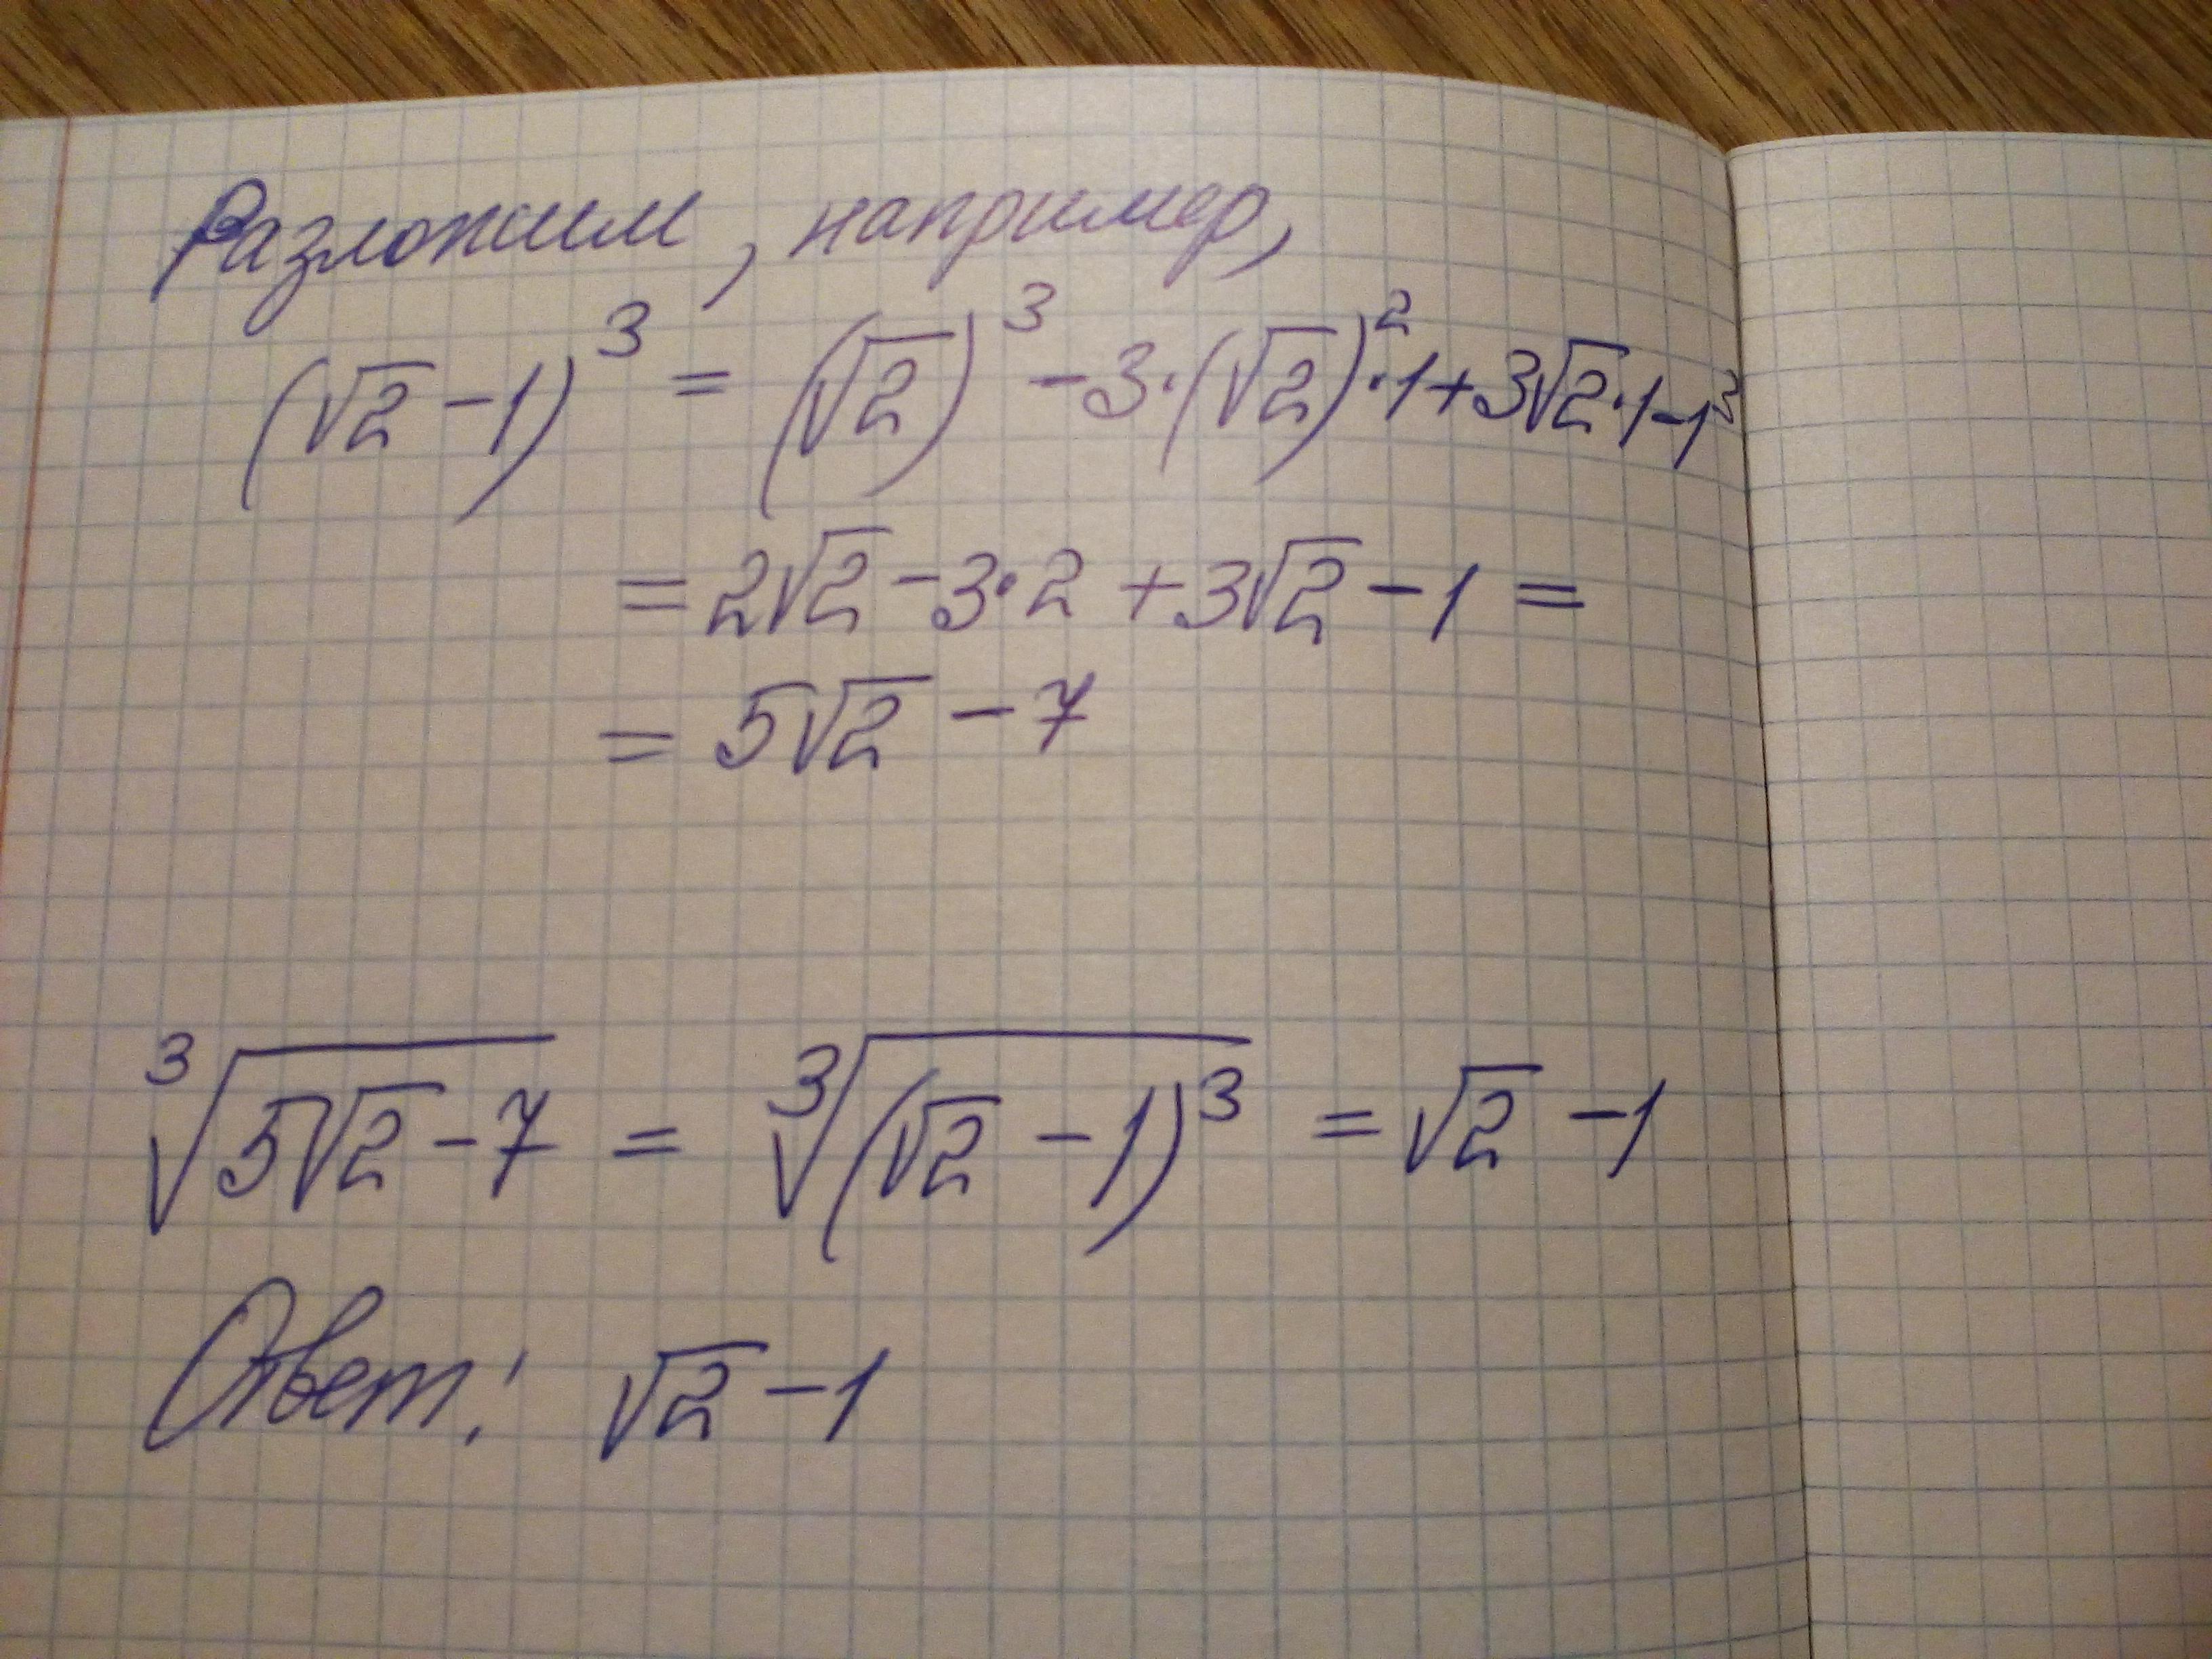 Разложим, например,
(√2 - 1)³ = (√2)³ - 3·(√2)²·1 + 3√2·1 - 1³
= 2√2 - 3·2 + 3√2 - 1 =
= 5√2 - 7
∛(5√2 - 7) = ∛((√2 - 1)³) = √2 - 1
Ответ: √2 - 1